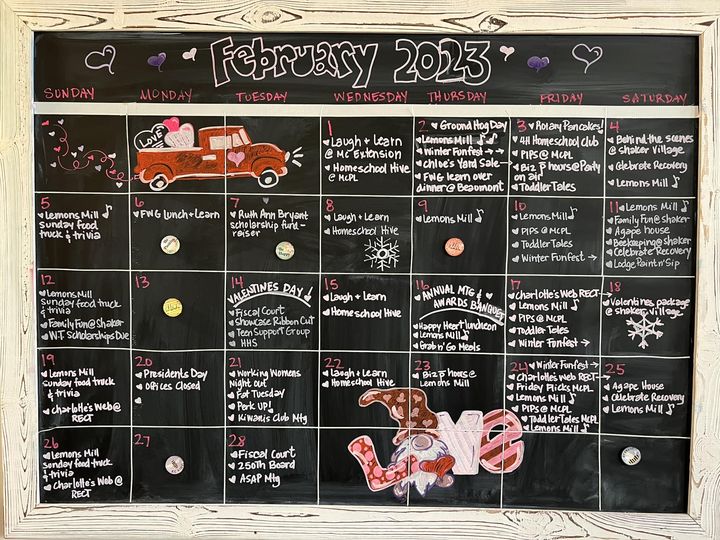 February 2023
SUNDAY
MONDAY
TUESDAY
WEDNESDAY
THURSDAY
FRIDAY
SATURDAY
LOVE
1
Laugh + Learn
@ Mc Extension
Homeschool Hive
@ MCPL
2 Ground Hog Day
Lemons Mill
Winter Funfest →→
Chloe's Yard Sale
FWG learn over
dinner @ Beaumont
3 Rotary Pancakes!
4H Homeschool Club
PIPS @ MCPL
Biz hours @ Party
on air
Toddler Tales
4
Behind the scenes
@ Shaker Village
Celebrate Recovery
Lemons Mill
5
Lemons Mill
Sunday food
truck & trivia
6
FWG Lunch + Learn
7
Ruth Ann Bryant
scholarship fund-
raiser
8
Laugh + Learn
Homeschool Hive
9
Lemons Mill
10
Lemons Mill
PIPS @ MCPL
Toddler Tales
Winter Funfest →
11 Lemons Mill
Family Fun @ Shaker
Agape house
Beekeeping @ Shaker
Celebrate Recovery
Lodge Paint n' Sip
12
Lemons Mill
Sunday food truck
& trivia
Family Fun @ Shaker
W.T. Scholarships Due
13
14
VALENTINES DAY
Fiscal Court
Showcase Ribbon Cut
Teen Support Group
HHS
15
Laugh + Learn
Homeschool Hive
16
ANNUAL MTG &
AWARDS BANQUET
Happy Heart luncheon
Lemons Mill
Grab n' Go Meals
17
Charlotte's Web RECT
Lemons Mill
PIPS @ MCPL
Toddler Tales
Winter Funfest →
18
Valentines package
@ Shaker Village
19
Lemons Mill
Sunday food truck
& trivia
Charlotte's Web @
RECT
20
Presidents Day
Offices Closed
21
Working Womens
Night out
Fat Tuesday
Perk Up!
Kiwanis Club Mtg
22
Laugh + Learn
Homeschool Hive
23
Biz hours @
Lemons Mill
24 Winter Funfest →
Charlotte's Web RECT
Friday Flicks MCPL
Lemons Mill
PIPS @ MCPL
Toddler Tales MCPL
Lemons Mill
25
Agape House
Celebrate Recovery
Lemons Mill
26
Lemons Mill
Sunday food truck
& trivia
Charlotte's Web @
RECT
27
28
Fiscal Court
250th Board
ASAP Mtg
LOVE